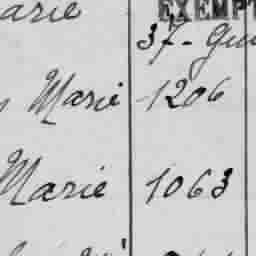 arie EXEMPT
37 - Gui
Marie 1206
Marie 1063